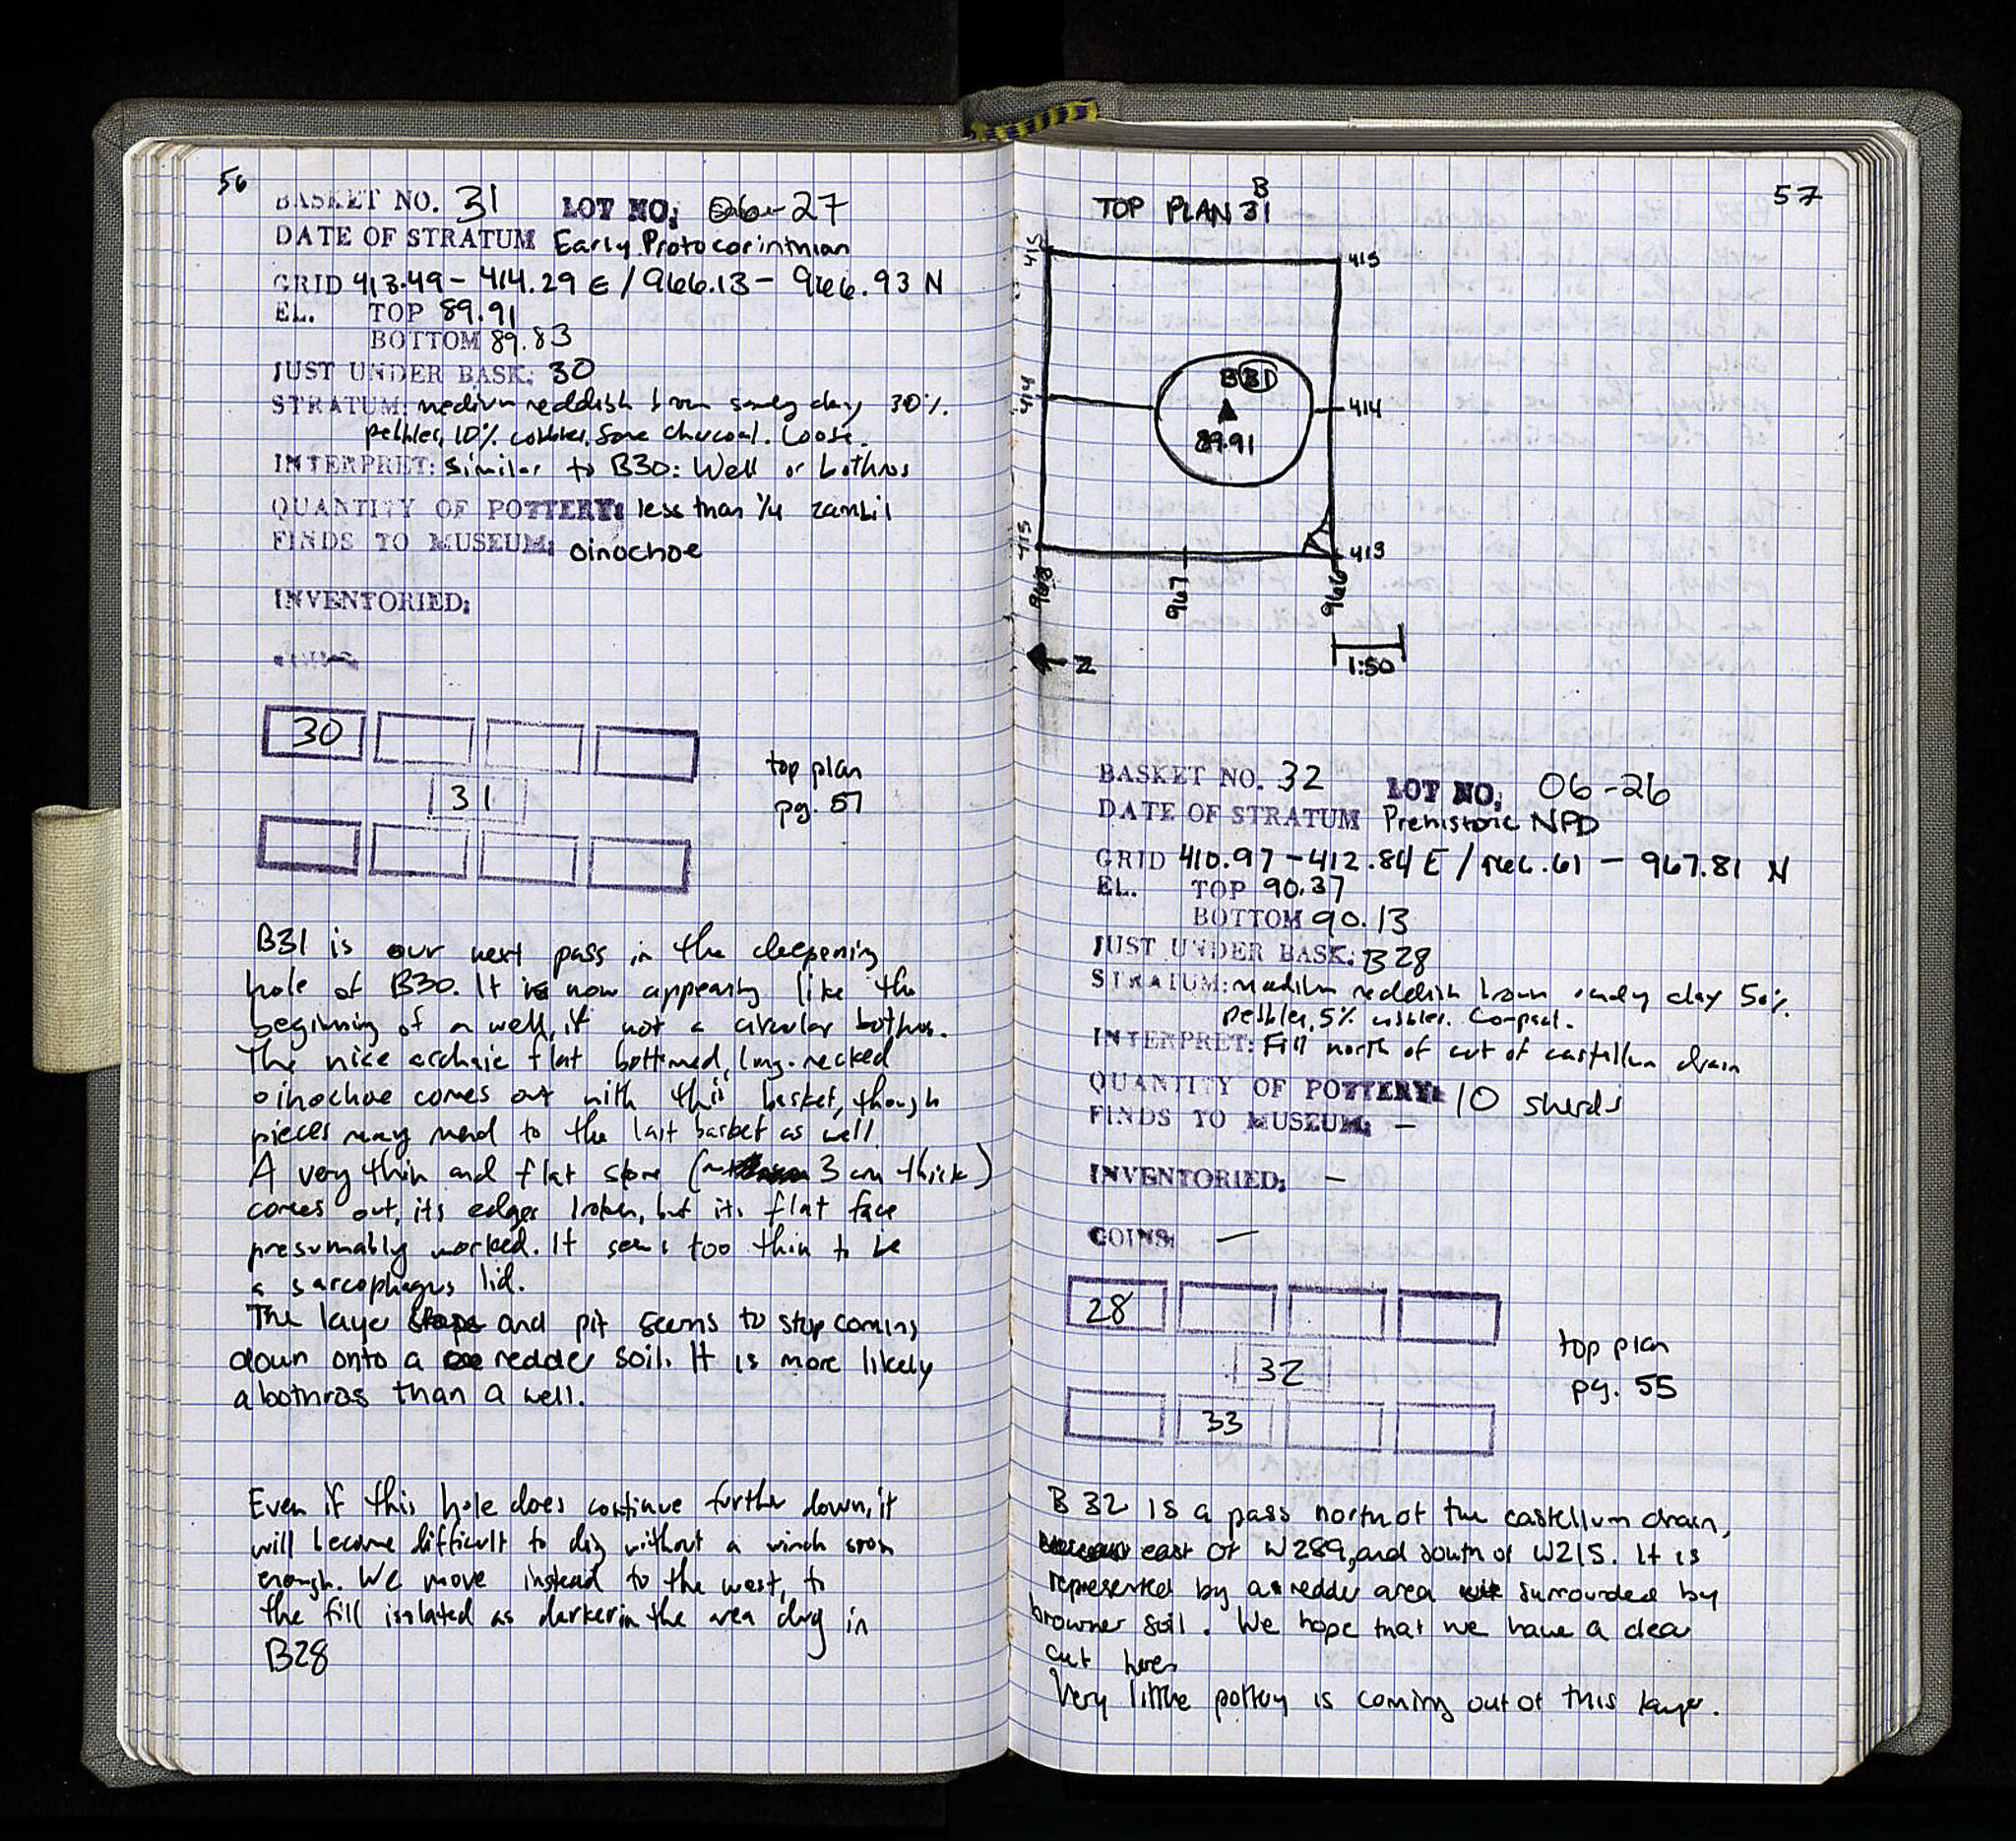 56
BASKET NO. 31 LOT NO. 06-27
DATE OF STRATUM Early Protocorinthian
GRID 413.49 - 414.29 E / 966.13 - 966.93 N
EL. TOP 89.91
BOTTOM 89.83
JUST UNDER BASK: 30
STRATUM: medium reddish brown sandy clay 30%
pebbles, 10% cobbles, some charcoal. Loose.
INTERPRET: similar to B30: Well or bothros
QUANTITY OF POTTERY: less than 1/4 zambil
FINDS TO MUSEUM: oinochoe
INVENTORIED:
30
31
top plan
pg. 57
B31 is our next pass in the deepening
hole of B30. It is now appearing like the
beginning of a well, if not a circular bothros.
The nice archaic flat bottomed, long-necked
oinochoe comes out with this basket, though
pieces may mend to the last basket as well.
A very thin and flat stone (3 cm thick)
comes out, its edges broken, but its flat face
presumably worked. It seems too thin to be
a sarcophagus lid.
The layer stops and pit seems to stop coming
down onto a redder soil. It is more likely
a bothros than a well.
Even if this hole does continue further down, it
will become difficult to dig without a winch soon
enough. We move instead to the west, to
the fill isolated as darker in the area dug in
B28
57
TOP PLAN B31
415
415
414
B31
89.91
414
415
413
968
967
966
N
1:50
BASKET NO. 32 LOT NO. 06-26
DATE OF STRATUM Prehistoric NPD
GRID 410.97 - 412.84 E / 966.61 - 967.81 N
EL. TOP 90.37
BOTTOM 90.13
JUST UNDER BASK: B28
STRATUM: medium reddish brown sandy clay 50%
pebbles, 5% cobbles. Compact.
INTERPRET: Fill north of cut of castellum drain
QUANTITY OF POTTERY: 10 sherds
FINDS TO MUSEUM: -
INVENTORIED: -
COINS: -
28
32
33
top plan
pg. 55
B 32 is a pass north of the castellum drain,
east of W289, and south of W215. It is
represented by a redder area surrounded by
browner soil. We hope that we have a clear
cut here
Very little pottery is coming out of this layer.